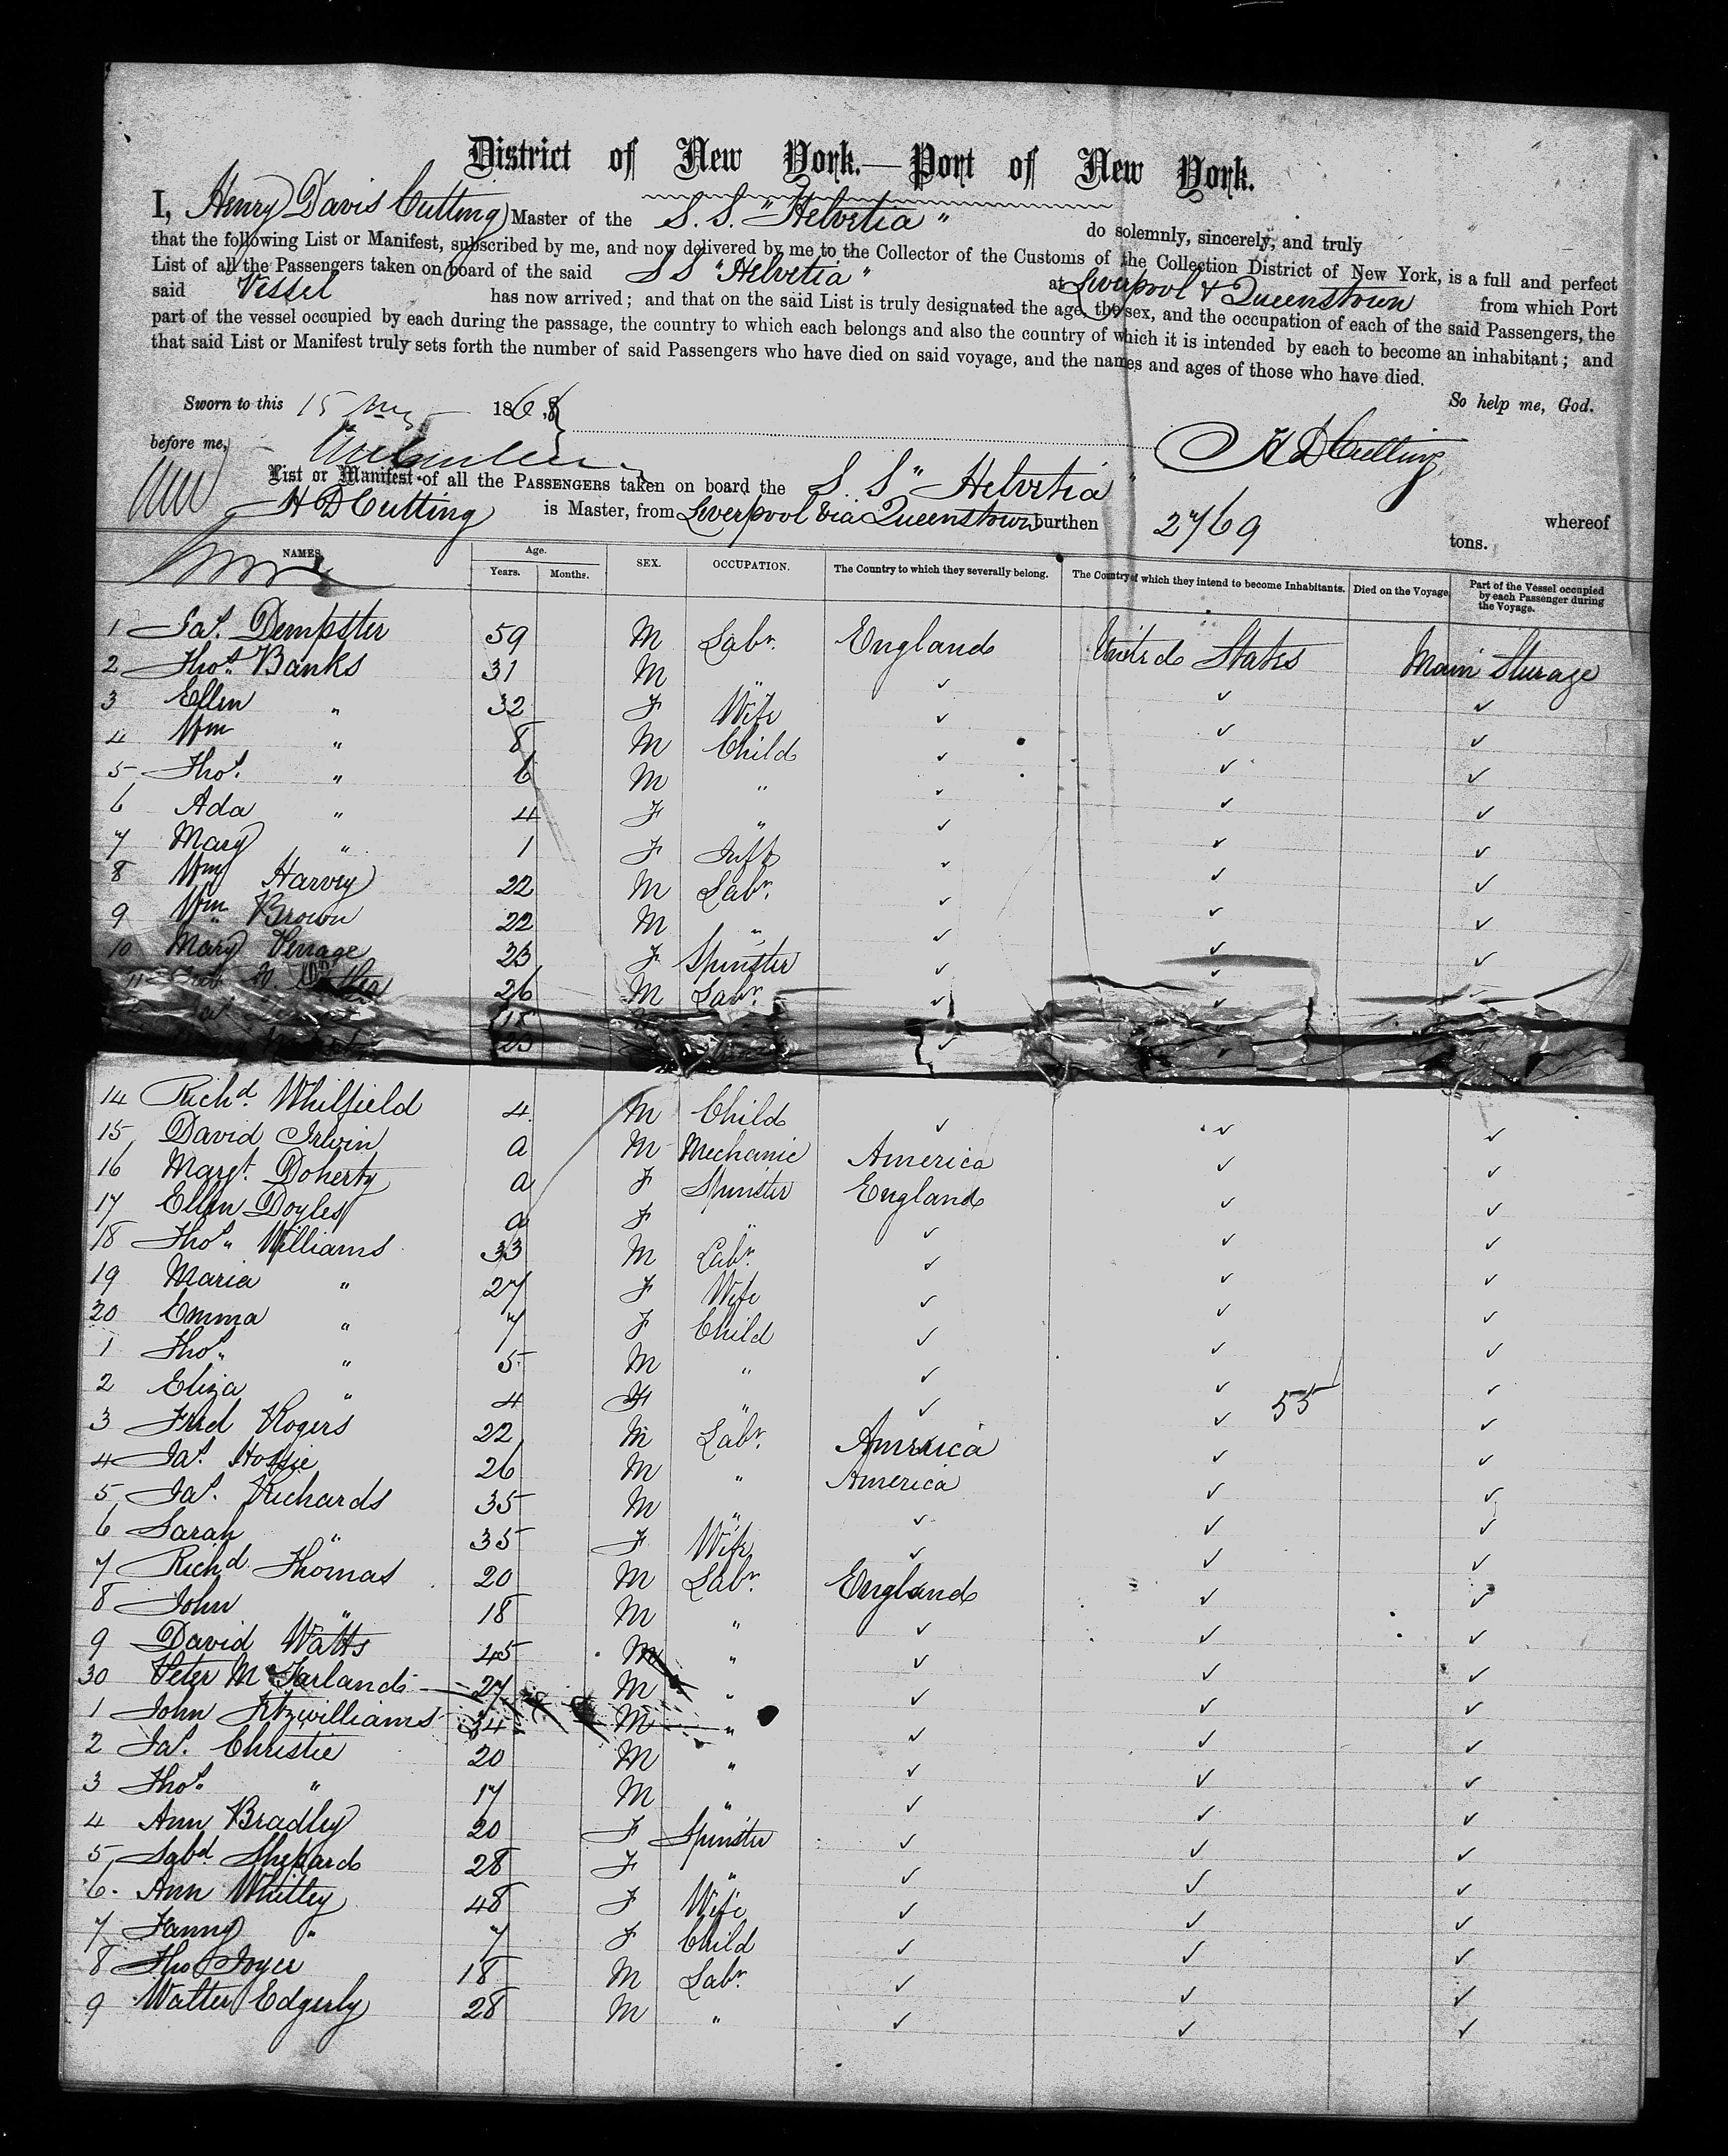 District of New York.—Port of New York.
I, Henry Davis Cutting Master of the S. S. "Helvetia" do solemnly, sincerely, and truly
that the following List or Manifest, subscribed by me, and now delivered by me to the Collector of the Customs of the Collection District of New York, is a full and perfect
List of all the Passengers taken on board of the said S S "Helvetia" at Liverpool & Queenstown from which Port
said Vessel has now arrived; and that on the said List is truly designated the age, the sex, and the occupation of each of the said Passengers, the
part of the vessel occupied by each during the passage, the country to which each belongs and also the country of which it is intended by each to become an inhabitant; and
that said List or Manifest truly sets forth the number of said Passengers who have died on said voyage, and the names and ages of those who have died.
So help me, God.
Sworn to this 15 1868
before me, H D Cutting
List or Manifest of all the PASSENGERS taken on board the S. S " Helvetia " whereof
H D Cutting is Master, from Liverpool via Queenstown burthen 2769 tons.
NAMES Age. Years. Months. SEX. OCCUPATION. The Country to which they severally belong. The Country of which they intend to become Inhabitants. Died on the Voyage Part of the Vessel occupied by each Passenger during the Voyage.
1 Jas. Dempster 59 M Labr. England United States Main Sturage
2 Thos. Banks 31 M " ✓ ✓ ✓
3 Ellen " 32 F Wife ✓ ✓ ✓
4 Wm " 8 M Child ✓ ✓ ✓
5 Thos. " 6 M " ✓ ✓ ✓
6 Ada " 4 F " ✓ ✓ ✓
7 Mary " 1 F Inft ✓ ✓ ✓
8 Wm Harvey 22 M Labr. ✓ ✓ ✓
9 Wm Brown 22 M " ✓ ✓ ✓
10 Mary 23 F Spinster ✓ ✓ ✓
11 26 M Labr. ✓ ✓
14 Richd. Whilfield 4 M Child ✓ ✓ ✓
15 David Irwin a M Mechanic America ✓ ✓
16 Margt. Doherty a F Spinster England ✓ ✓
17 Ellen Doyles a F " ✓ ✓ ✓
18 Thos. Williams 33 M Labr. ✓ ✓ ✓
19 Maria " 27 F Wife ✓ ✓ ✓
20 Emma " 7 F Child ✓ ✓ ✓
1 Thos. " 5 M " ✓ ✓ ✓
2 Eliza " 4 F " ✓ ✓ 55 ✓
3 Fred Rogers 22 M Labr. America ✓ ✓
4 Jas. Hossie 26 M " America ✓ ✓
5 Jas. Richards 35 M " ✓ ✓ ✓
6 Sarah " 35 F Wife ✓ ✓ ✓
7 Richd. Thomas 20 M Labr. England ✓ ✓
8 John " 18 M " ✓ ✓ ✓
9 David Watts 45 M " ✓ ✓ ✓
30 Peter McFarland 27 M " ✓ ✓ ✓
1 John Fitzwilliams 34 M " ✓ ✓ ✓
2 Jas. Christie 20 M " ✓ ✓ ✓
3 Thos. " 17 M " ✓ ✓ ✓
4 Ann Bradley 20 F Spinster ✓ ✓ ✓
5 Shepard 28 F " ✓ ✓ ✓
6. Ann Whitley 48 F Wife ✓ ✓ ✓
7 Fanny " 7 F Child ✓ ✓ ✓
8 Thos Joyce 18 M Labr. ✓ ✓ ✓
9 Walter Edgerly 28 M " ✓ ✓ ✓